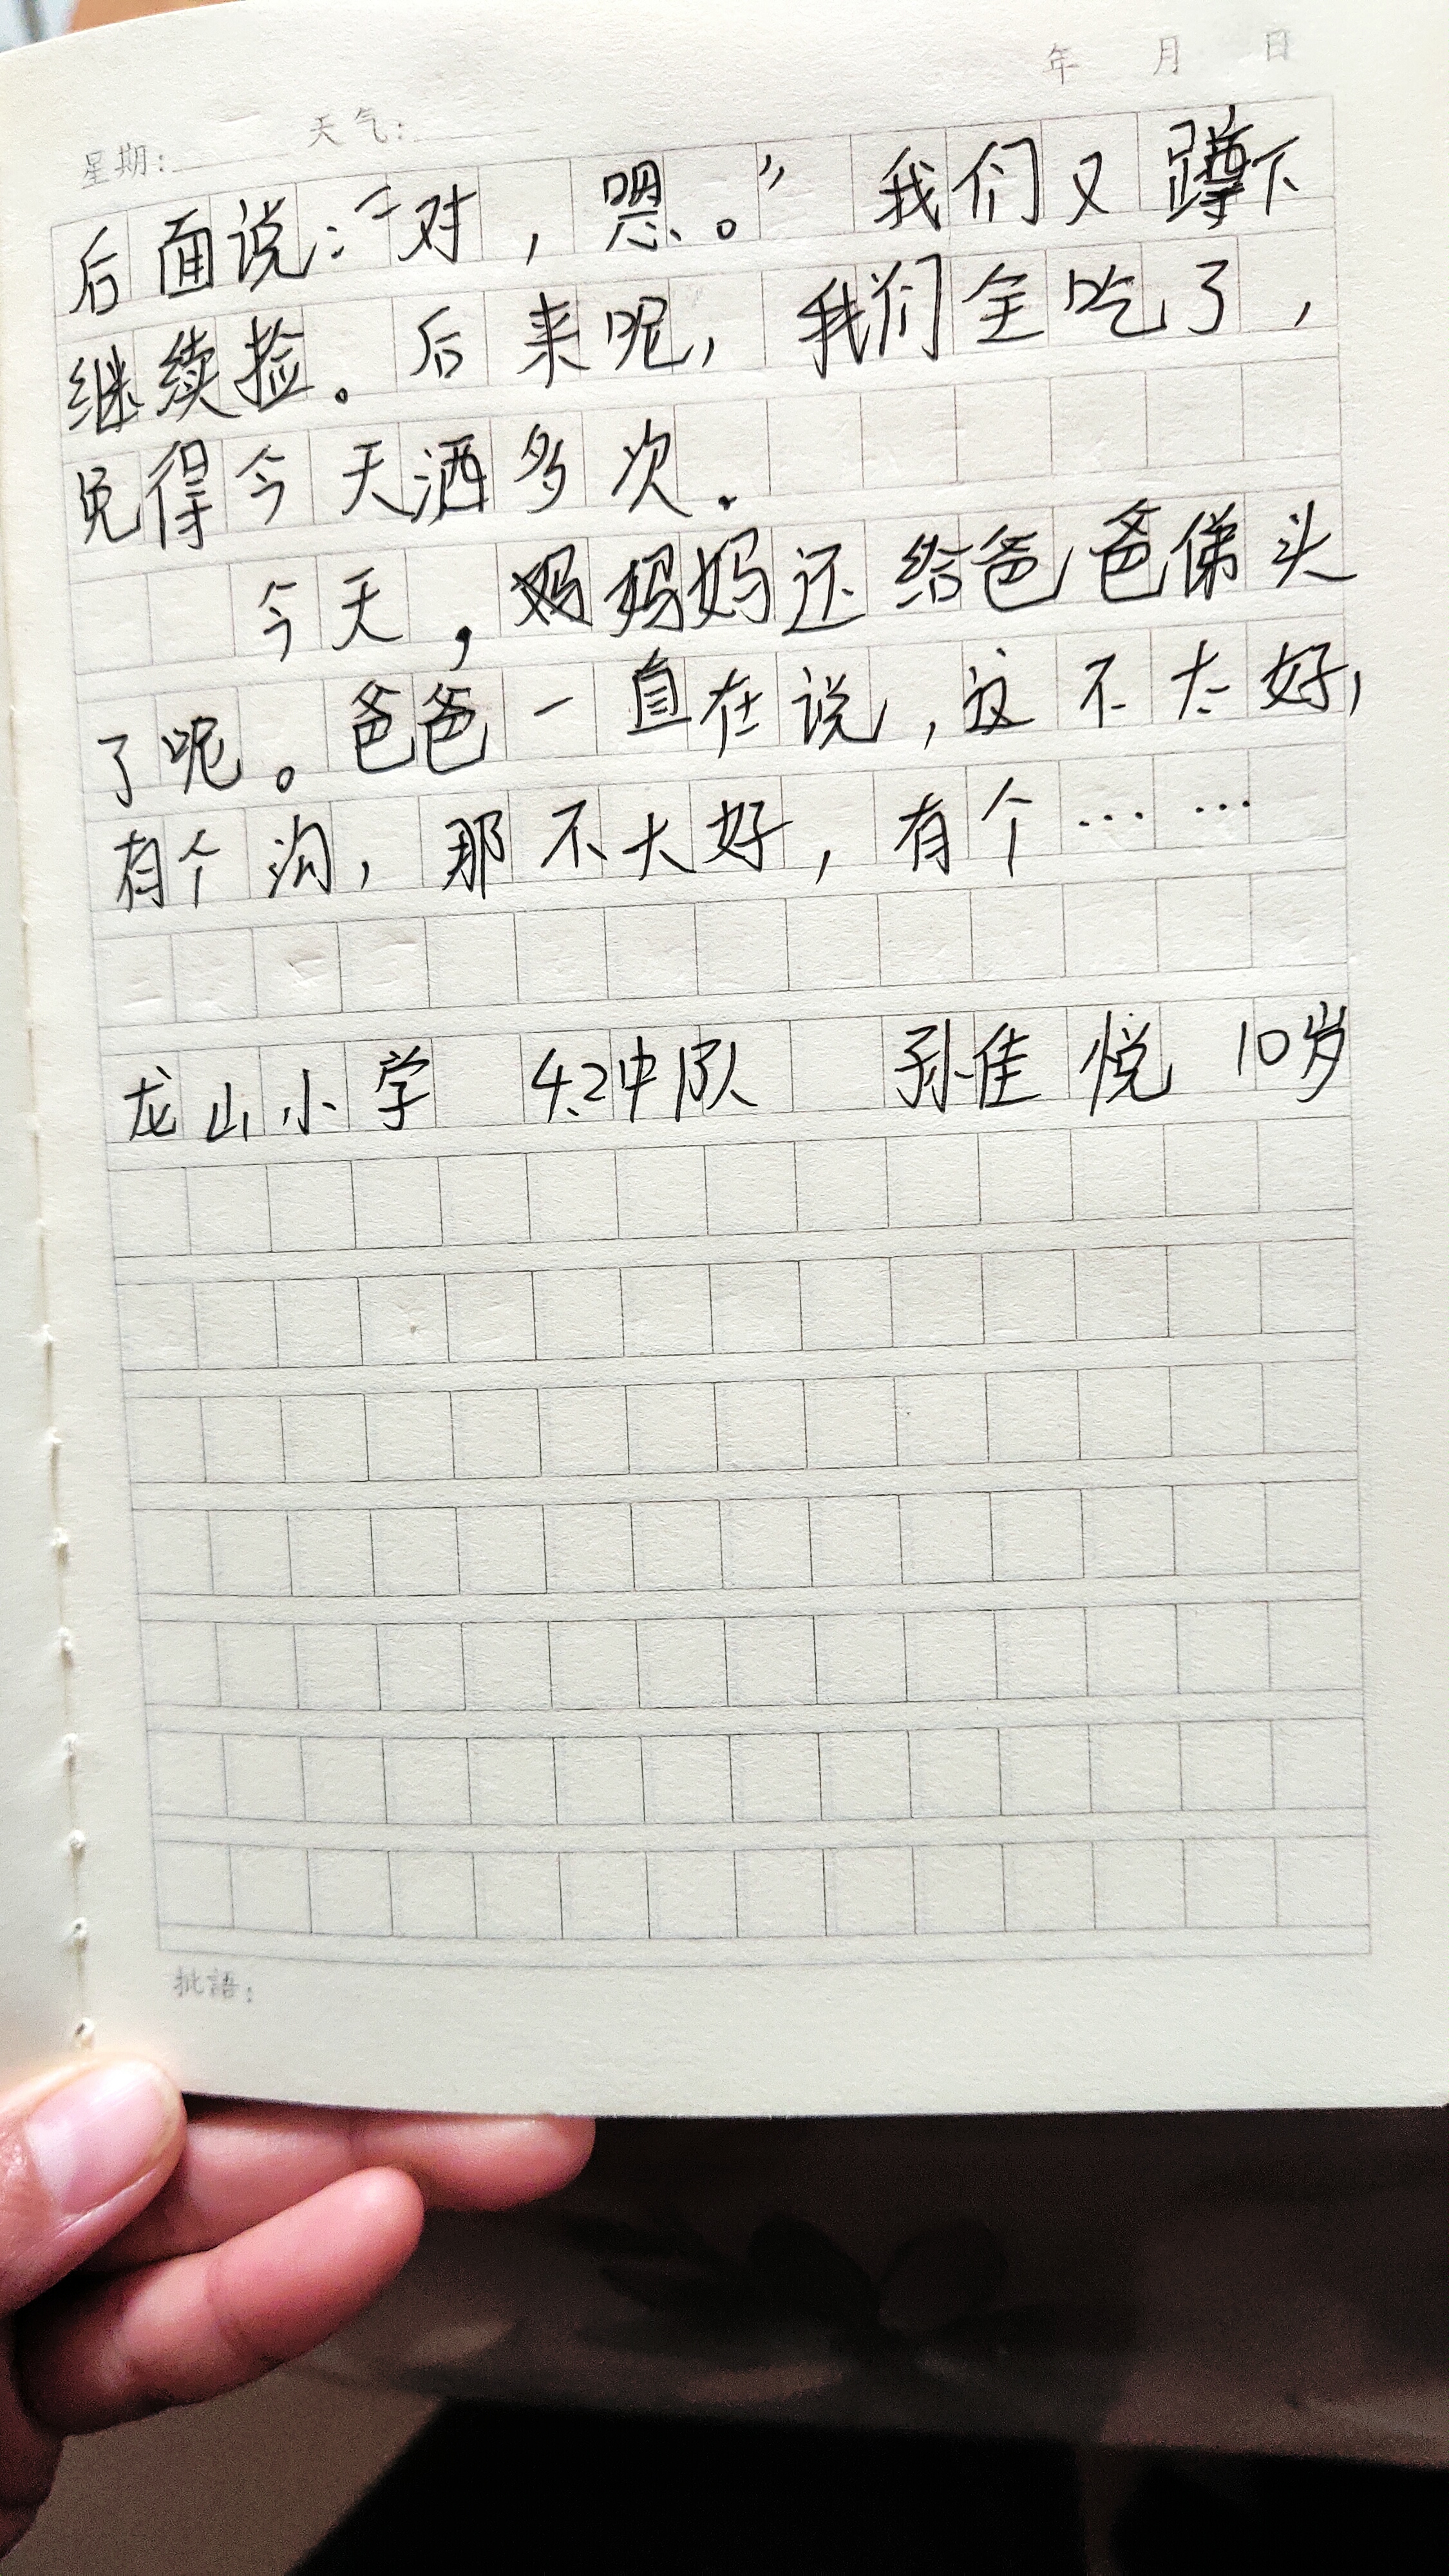 年 月 日
星期: 天气:
后面说:“对,嗯。”我们又蹲下
继续捡。后来呢,我们全吃了,
免得今天洒多次.
今天,妈妈还给爸爸俤头
了呢。爸爸一直在说,这不太好,
有个沟,那不大好,有个……
龙山小学 4.2中队 孙佳悦 10岁
批語: